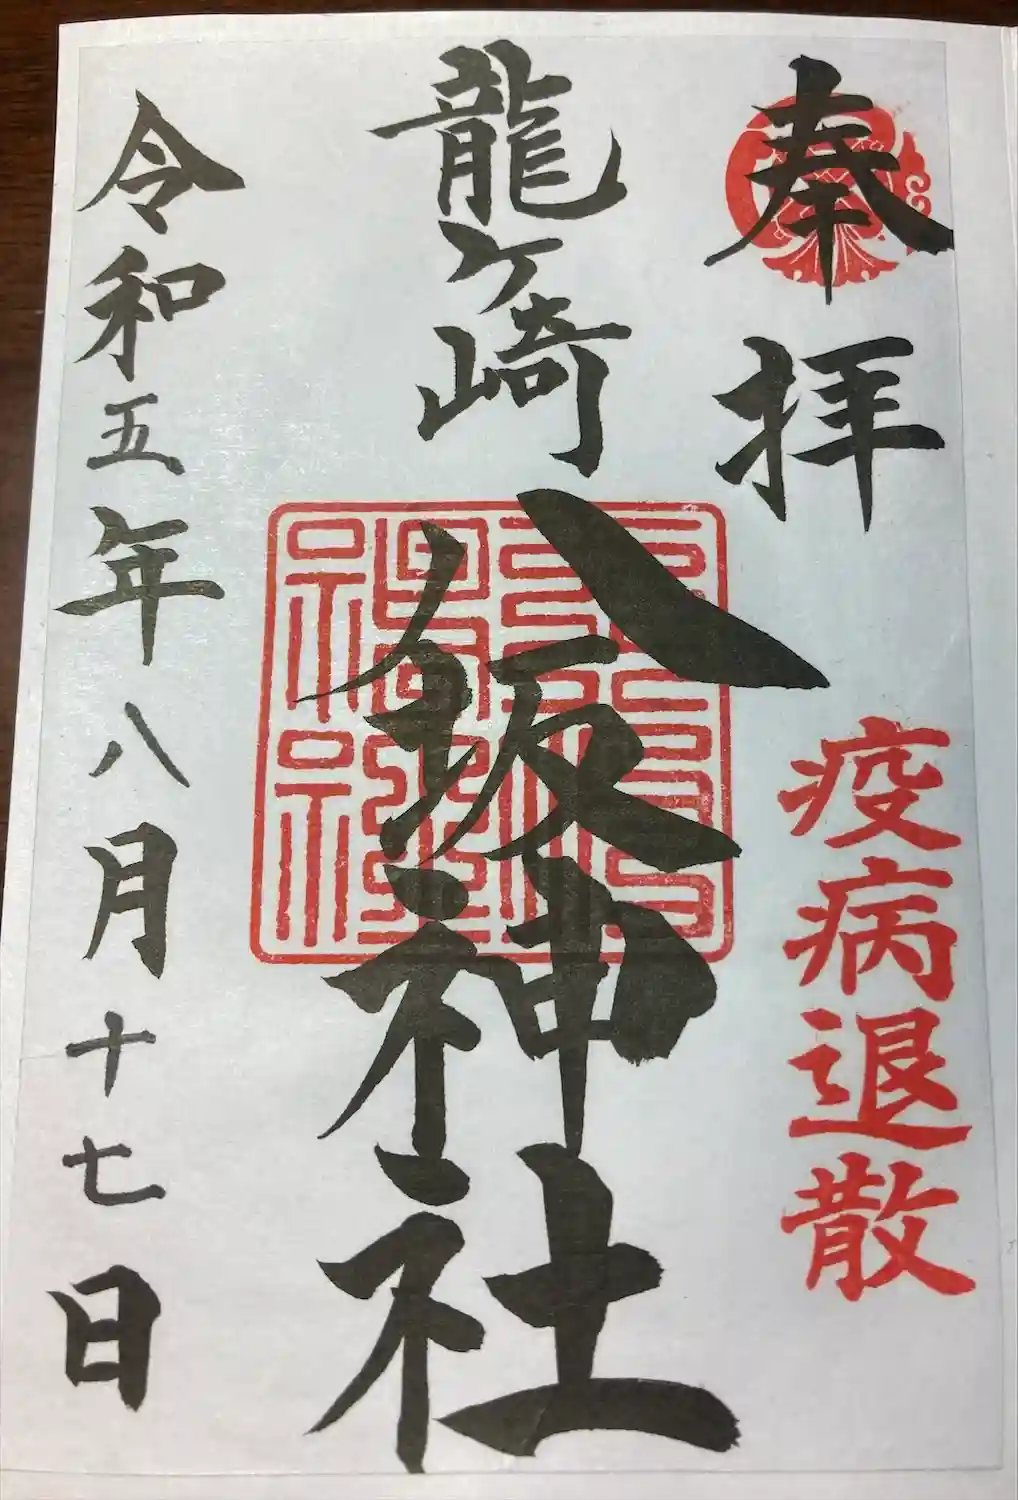 奉拝
疫病退散
龍ヶ崎
八坂神社
令和五年八月十七日